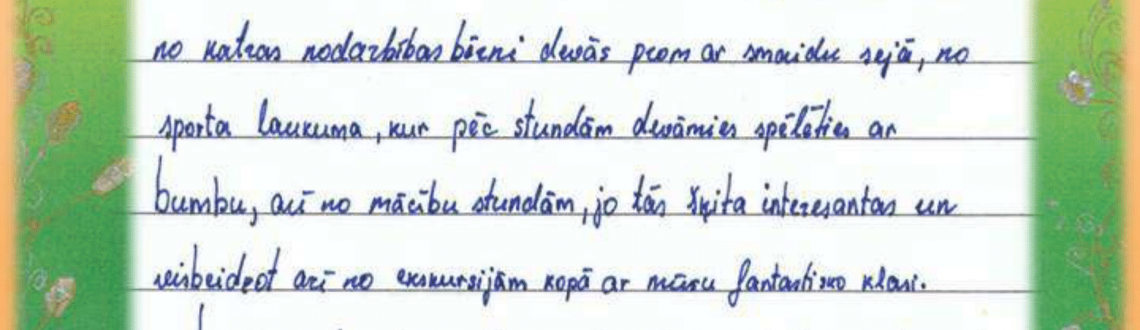 no katras nodarbības bērni devās prom ar smaidu sejā, no
sporta laukuma, kur pēc stundām devāmies spēlēties ar
bumbu, arī no mācību stundām, jo tās šķita interesantas un
visbeidzot arī no ekskursijām kopā ar mūsu fantastisko klasi.